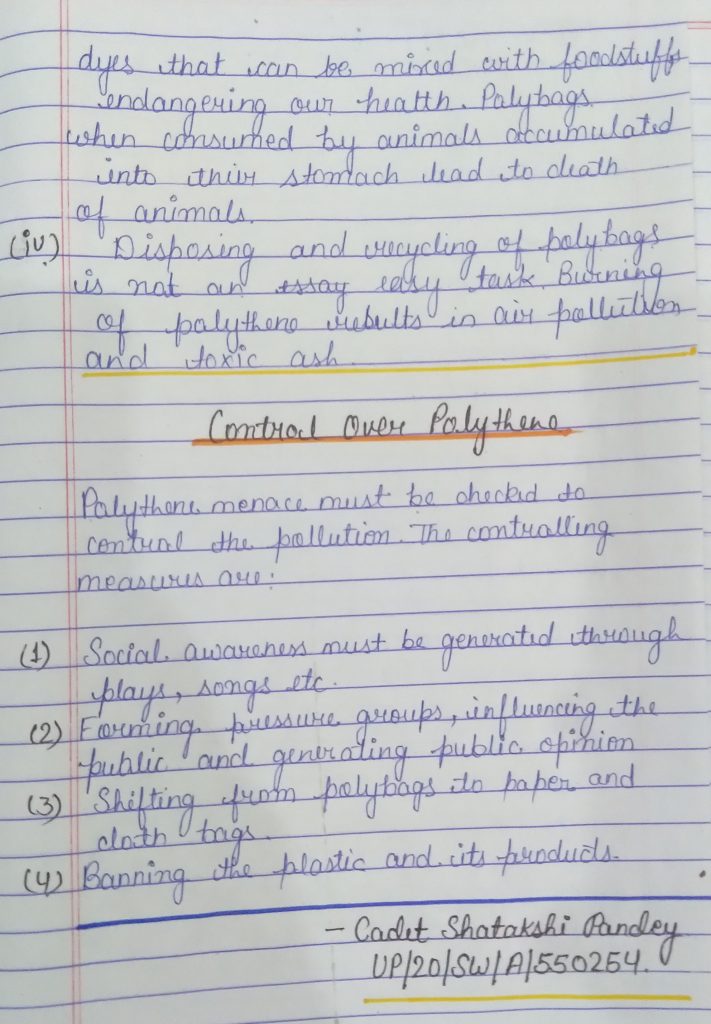 dyes that can be mixed with foodstuffs
endangering our health. Palybags
when consumed by animals accumulated
into their stomach lead to death
of animals.
(iv) Disposing and recycling of polybags
is not an essay easy task. Burning
of polythene results in air pollution
and toxic ash.
Control Over Polythene
Polythene menace must be checked to
control the pollution. The controlling
measures are:
(1) Social awareness must be generated through
plays, songs etc.
(2) Forming pressure groups, influencing the
public and generating public opinion
(3) Shifting from polybags to paper and
cloth bags.
(4) Banning the plastic and its products.
- Cadet Shatakshi Pandey
UP/20/SW/A/550254.